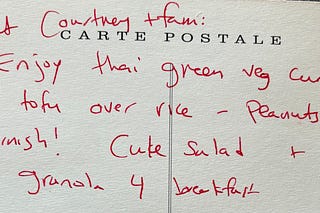 Courtney + fam:
CARTE POSTALE
Enjoy thai green veg cu
tofu over rice - Peanuts
nish! Cuke Salad +
granola 4 breakfast